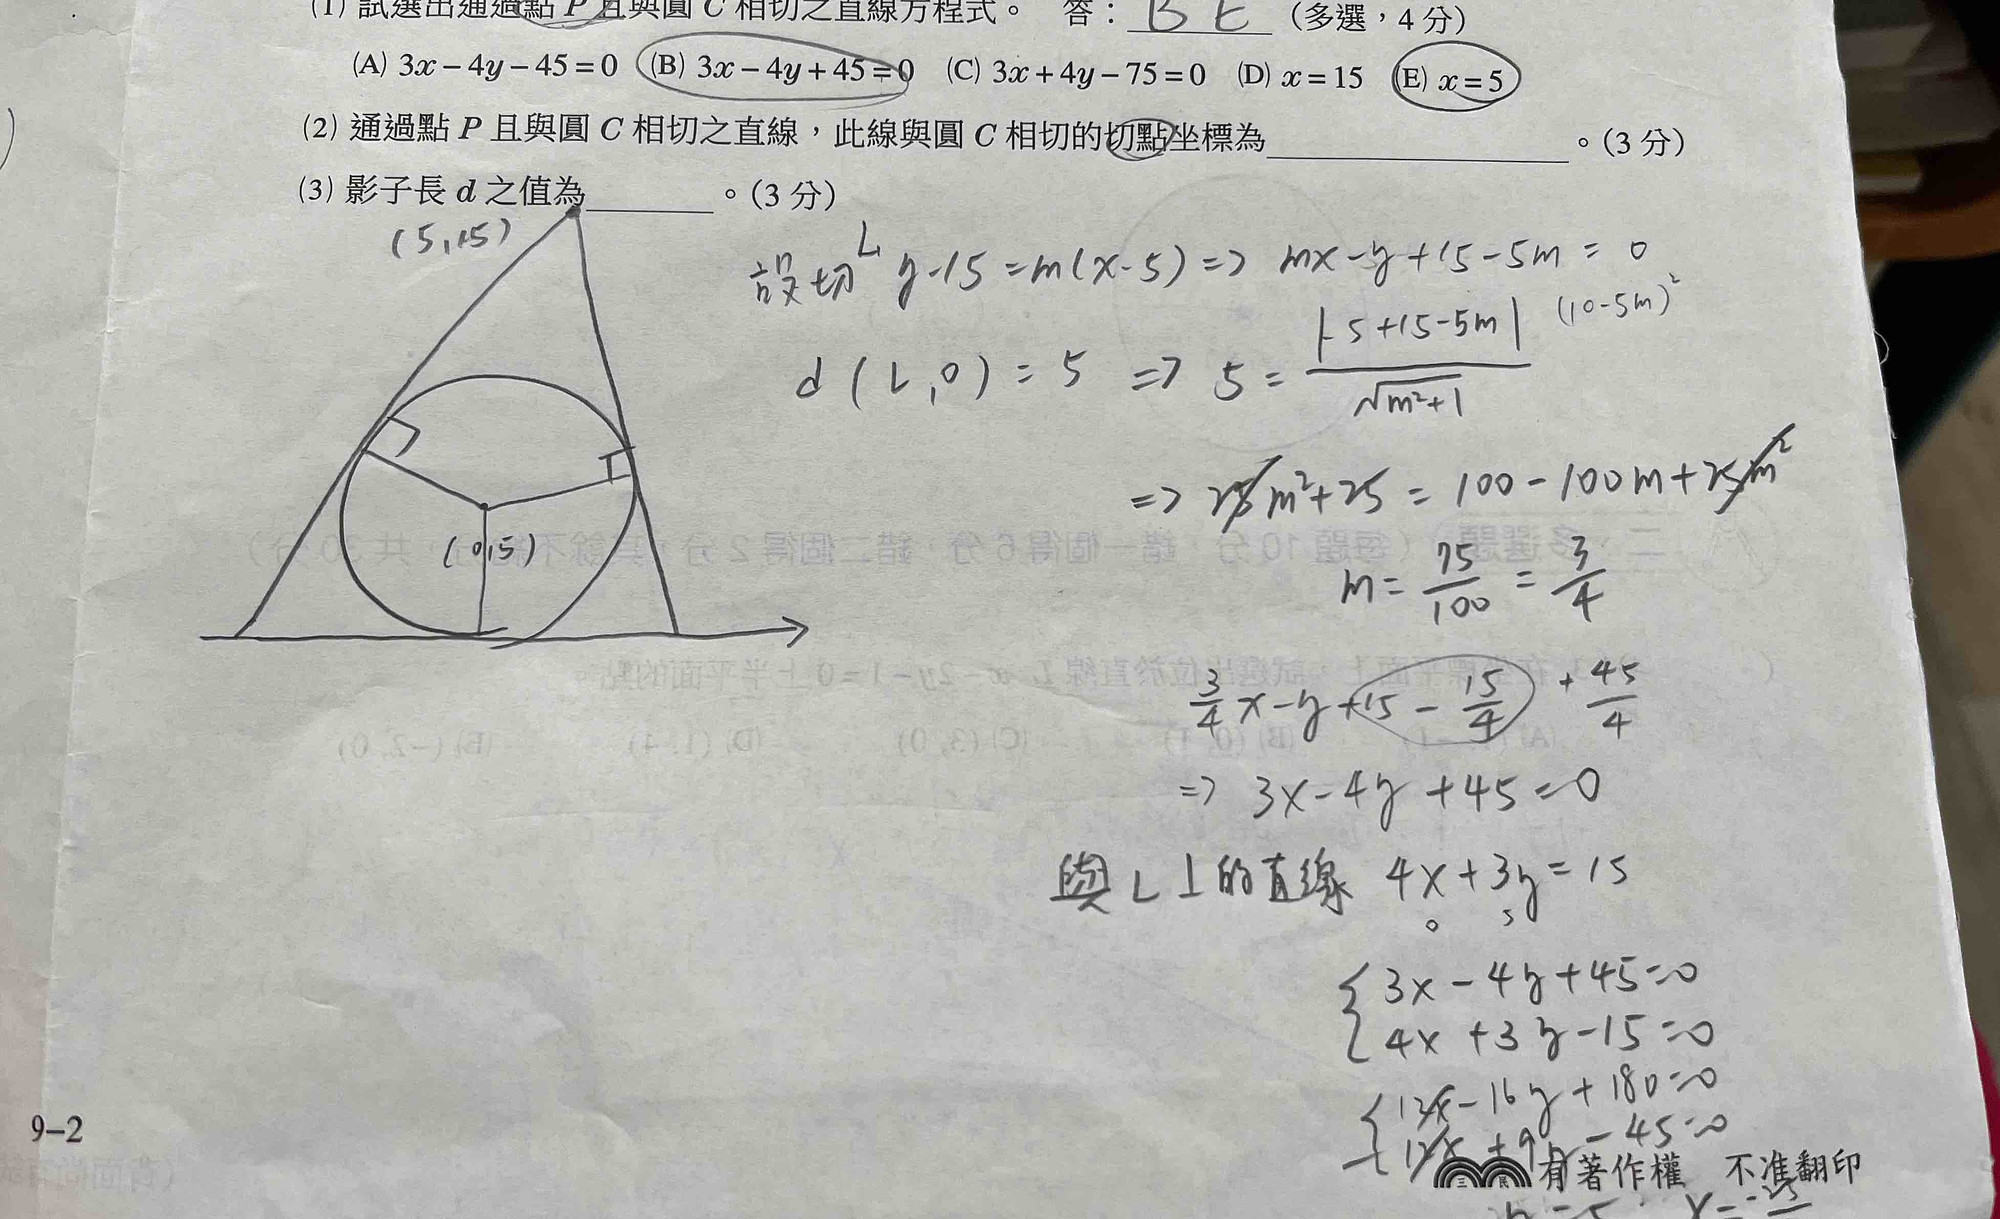 (1) 試選出通過點 P 且與圓 C 相切之直線方程式。 答： B E （多選，4 分）
(A) 3x－4y－45＝0 (B) 3x－4y＋45＝0 (C) 3x＋4y－75＝0 (D) x＝15 (E) x＝5
(2) 通過點 P 且與圓 C 相切之直線，此線與圓 C 相切的切點坐標為＿＿＿＿＿＿。（3 分）
(3) 影子長 d 之值為＿＿＿。（3 分）
(5,15)
設切L y-15=m(x-5) => mx-y+15-5m=0
(10-5m)²
d(L,0)=5 => 5= |-5+15-5m| / √m²+1
=> 25m²+25=100-100m+25m²
(0,5)
m= 75/100 = 3/4
3/4 x-y+15- 15/4 + 45/4
=> 3x-4y+45=0
與L⊥的直線 4x+3y=15
0 5
3x-4y+45=0
4x+3y-15=0
12x-16y+180=0
12x+9y-45=0
9-2
三民 有著作權 不准翻印